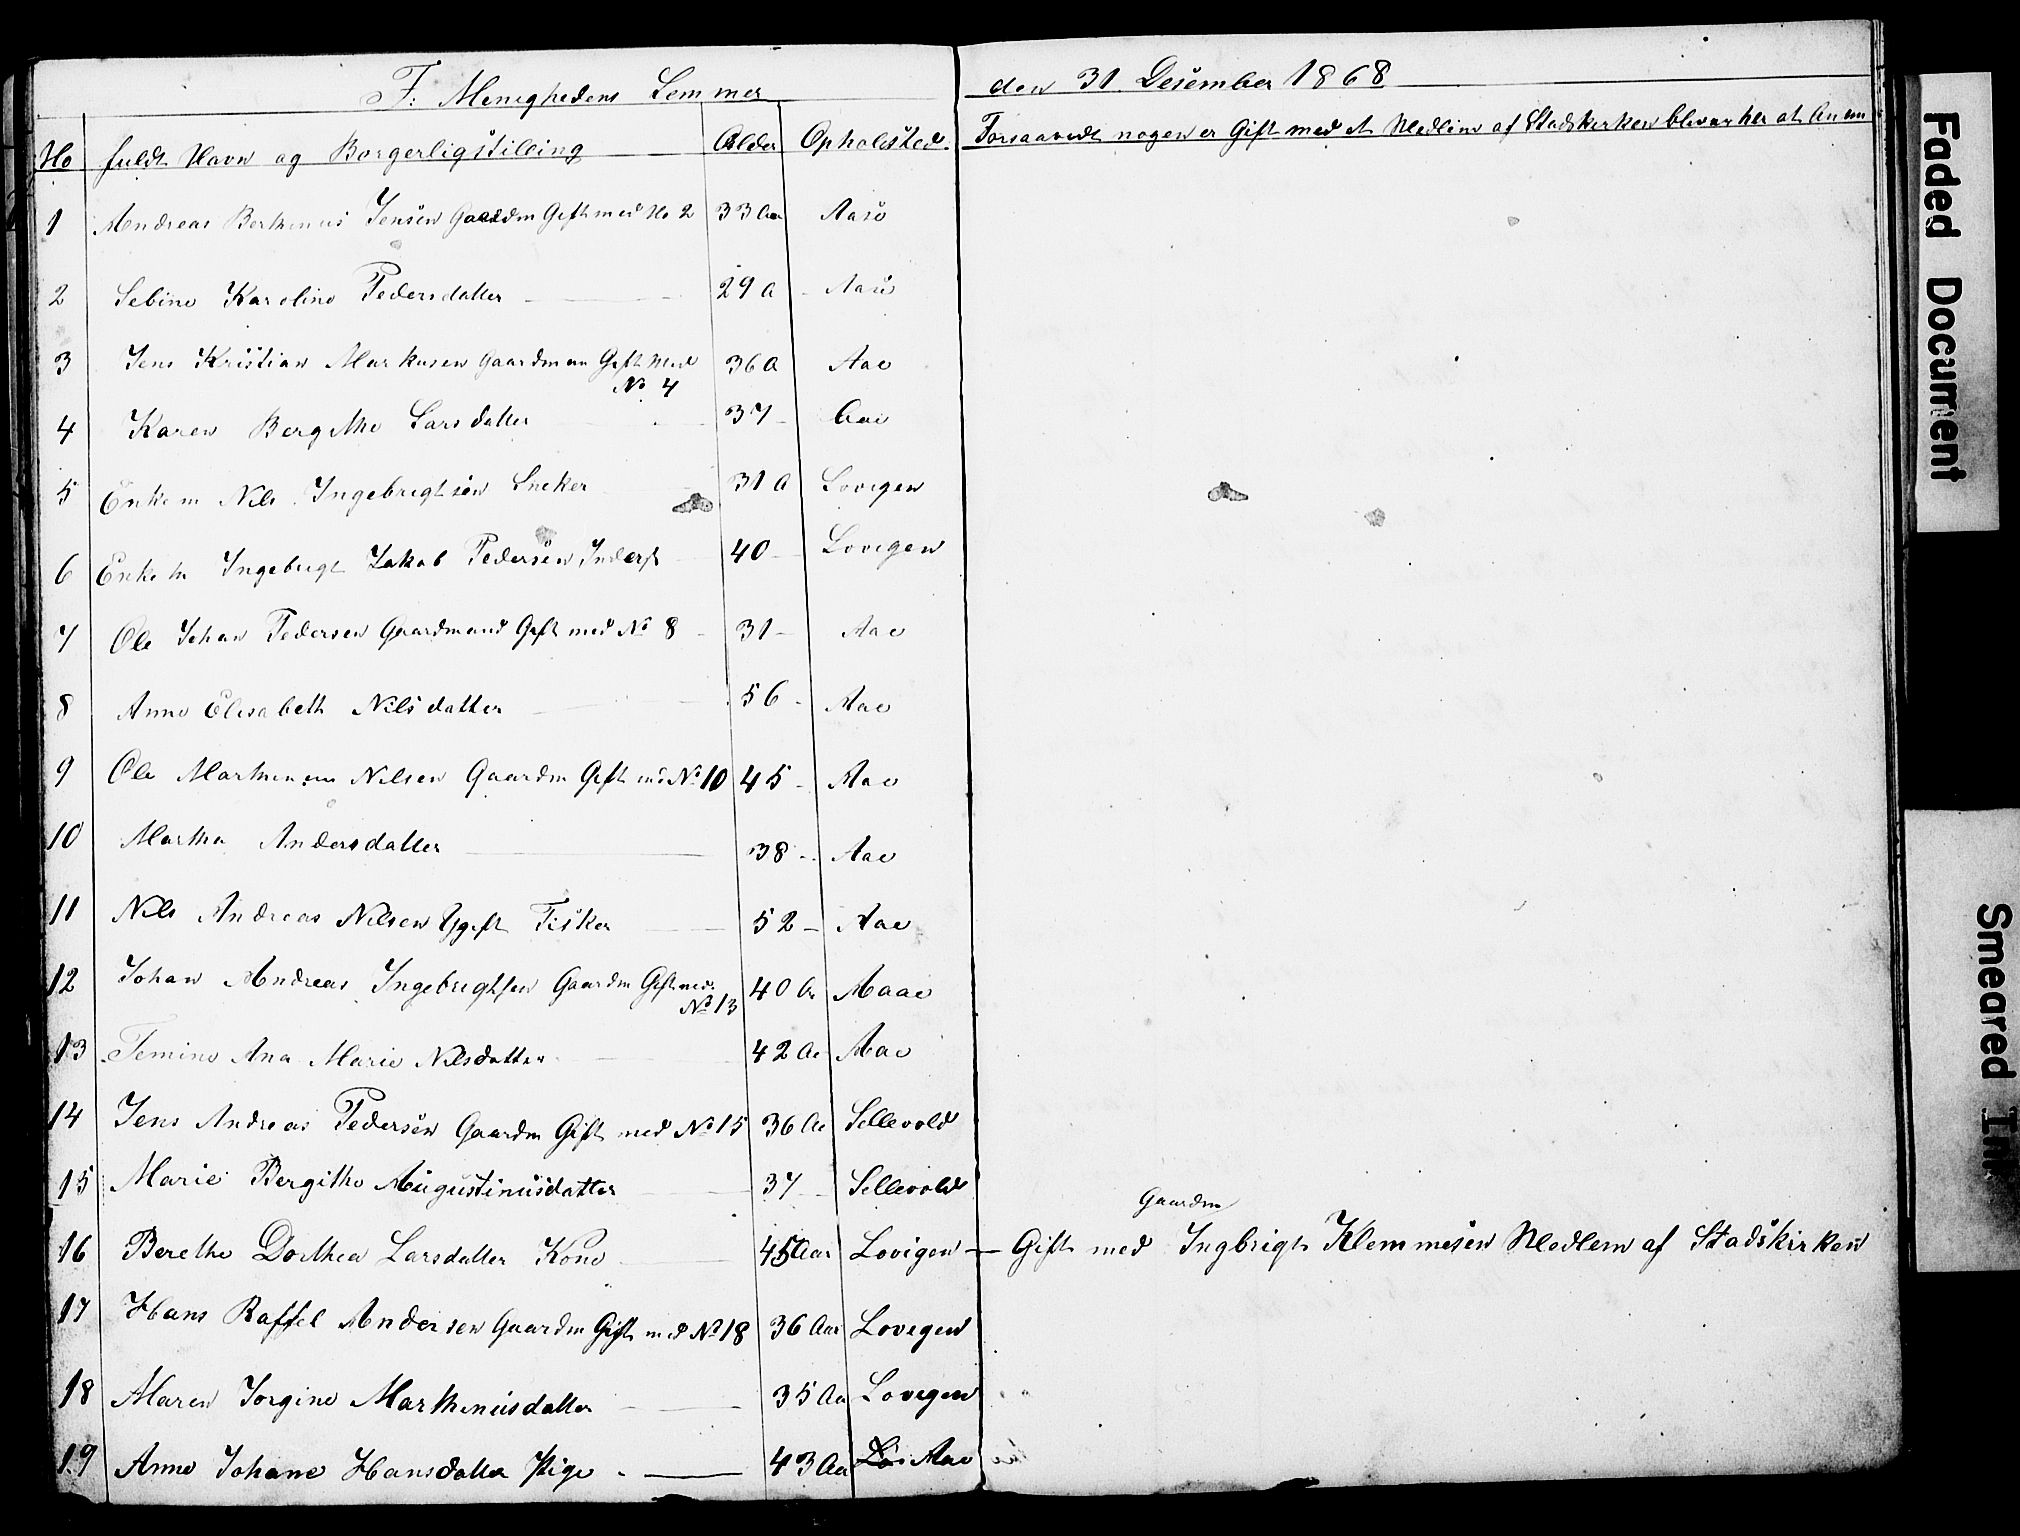 F: Menighedens Lemmer den 31 Desember 1868
No fuldt Navn og Borgerligstilling Alder Opholdsted Forsaavidt nogen er Gift med et Medlem af Stadskirken blever her at
1 Andreas Berthinus Jensen Gaardm Gift med No 2 33 Aar Aase
2 Sebine Karoline Pedersdatter 29 A Aase
3 Jens Kristian Markusen Gaardman Gift Med
No 4 36 A Aae
4 Karen Bergithe Larsdatter 37 Aae
5 Enkem Nils Ingebrigtsen Sneker 31 A Lovigen
6 Enkem Ingebrigt Jakob Pedersen Inderst 40 Lovigen
7 Ole Johan Pedersen Gaardmand Gift med No 8 31 Aae
8 Anne Elisabeth Nilsdatter 56 Aae
9 Ole Nilsen Gaardm Gift med No 10 45 Aae
10 Martha Andersdatter 38 Aae
11 Nils Andreas Nilsen Ugift Fisker 52 Aae
12 Johan Andreas Ingebrigtsen Gaardm Gift med
No 13 40 Aa Maae
13 Femine Ana Marie Nilsdatter 42 Aa Aae
14 Jens Andreas Pedersen Gaardm Gift med No 15 36 Aa Sellevold
15 Marie Bergithe Augustinusdatter 37 Sellevold
Gaardm
16 Berethe Dorthea Larsdatter Kone 45 Aar Lovigen — Gift med Ingbrigt Klemmesen Medlem af Stadskirken
17 Hans Raffel Andersen Gaardm Gift med No 18 36 Aar Lovegen
18 Maren Jorgine Marthinusdatter 35 Aa Lovegen
19 Anne Johane Hansdatter Pige 43 Aa Lo Aae
Faded Document
Smeared Ink